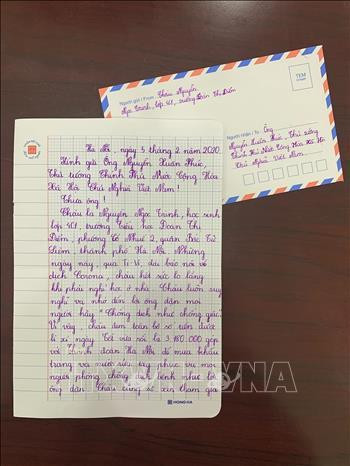 Người gửi / From Cháu Nguyễn
Ngọc Trinh, lớp 4C1, trường Đoàn Thị Điểm
TEM
Người Nhận / To Ông
Nguyễn Xuân Phúc, Thủ tướng
Chính Phủ Nước Cộng Hòa Xã Hội
Chủ Nghĩa Việt Nam
Hà Nội, ngày 5 tháng 2 năm 2020
Kính gửi Ông Nguyễn Xuân Phúc,
Thủ tướng Chính Phủ Nước Cộng Hòa
Xã Hội Chủ Nghĩa Việt Nam!
Thưa ông!
Cháu là Nguyễn Ngọc Trinh, học sinh
lớp 4C1, trường Tiểu học Đoàn Thị
Điểm, phường Cổ Nhuế 2, quận Bắc Từ
Liêm thành phố Hà Nội. Những
ngày này, qua Ti Vi, đài báo nói về
dịch Corona, cháu hết sức lo lắng
khi phải nghỉ học ở nhà. Cháu luôn suy
nghĩ và nhớ đến lời ông dặn mọi
người hãy "Chống dịch như chống giặc".
Vì vậy, cháu đem toàn bộ số tiền được
lì xì ngày Tết vừa rồi là 3.180.000 góp
với Thành đoàn Hà Nội để mua khẩu
trang và nước rửa tay phục vụ mọi
người phòng chống dịch bệnh như lời
ông dặn. Cháu cũng sẽ xin tham gia
HONG HA
VNA